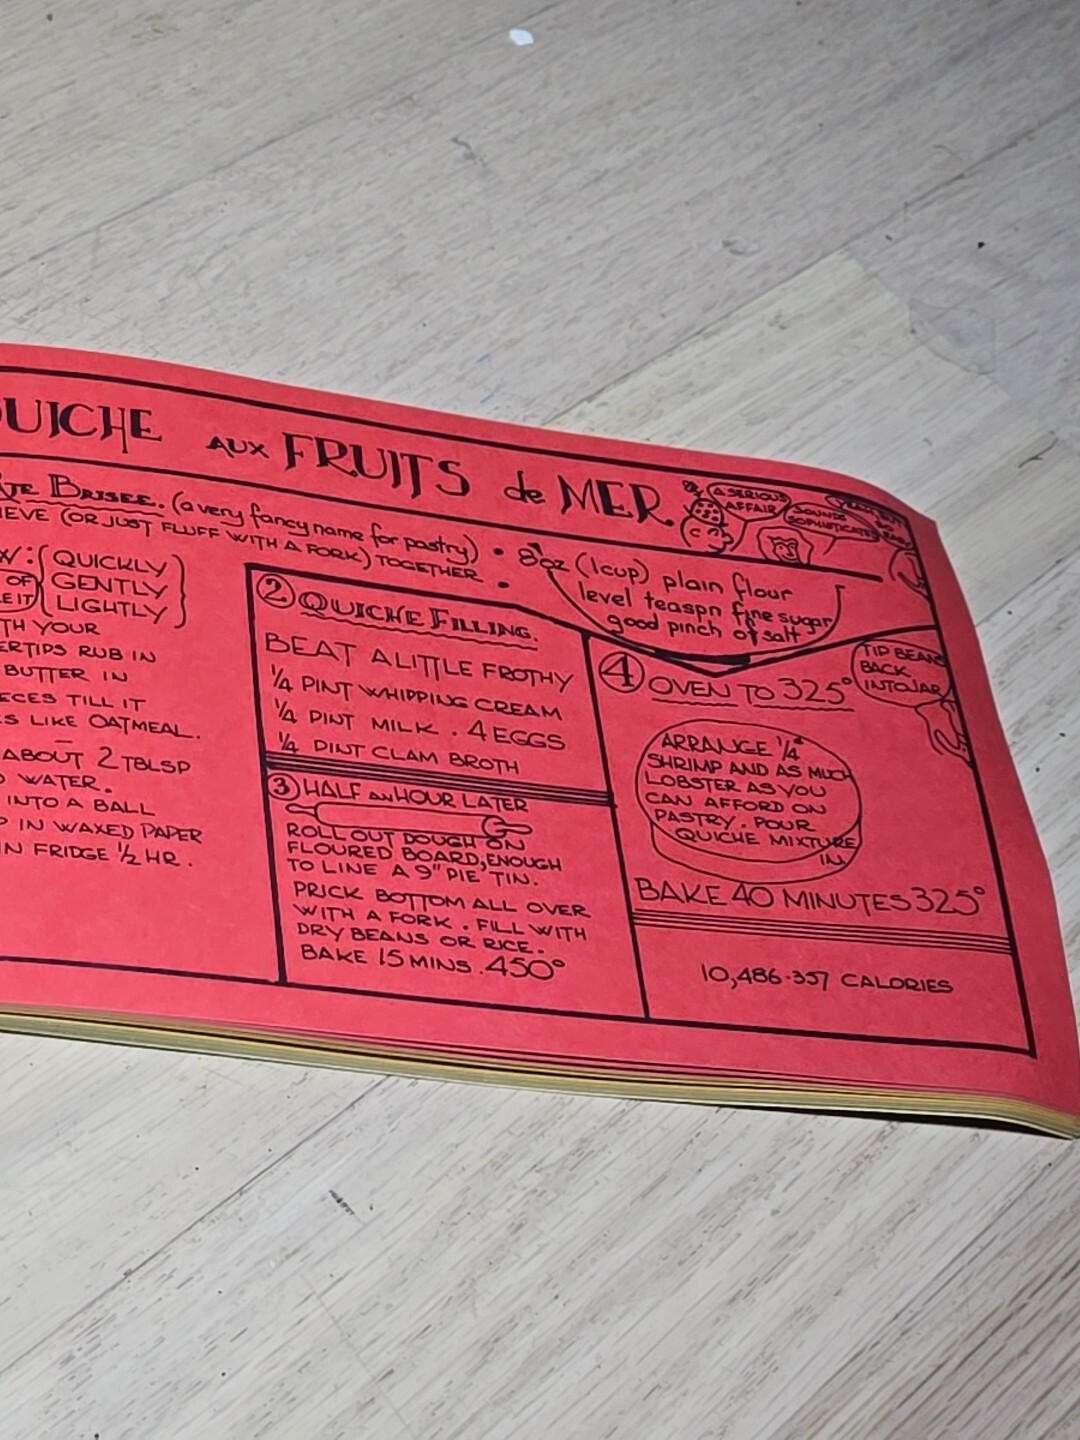 QUICHE AUX FRUITS de MER.
A SERIOUS
AFFAIR
SOUNDS
SOPHISTICATED
BRISEE. (a very fancy name for pastry)
(OR JUST FLUFF WITH A FORK) TOGETHER
• 8oz (1cup) plain flour
level teaspn fine sugar
good pinch of salt
QUICKLY
OF GENTLY
IT LIGHTLY
YOUR
RUB IN
BUTTER IN
TILL IT
LIKE OATMEAL.
ABOUT 2 TBLSP
WATER.
INTO A BALL
IN WAXED PAPER
IN FRIDGE ½ HR.
② QUICHE FILLING.
BEAT A LITTLE FROTHY
¼ PINT WHIPPING CREAM
¼ PINT MILK . 4 EGGS
¼ PINT CLAM BROTH
③ HALF AN HOUR LATER
ROLL OUT DOUGH ON
FLOURED BOARD, ENOUGH
TO LINE A 9" PIE TIN.
PRICK BOTTOM ALL OVER
WITH A FORK . FILL WITH
DRY BEANS OR RICE.
BAKE 15 MINS . 450°
④ OVEN TO 325°
TIP BEANS
BACK
INTO JAR
ARRANGE ¼
SHRIMP AND AS MUCH
LOBSTER AS YOU
CAN AFFORD ON
PASTRY . POUR
QUICHE MIXTURE
IN.
BAKE 40 MINUTES 325°
10,486·357 CALORIES